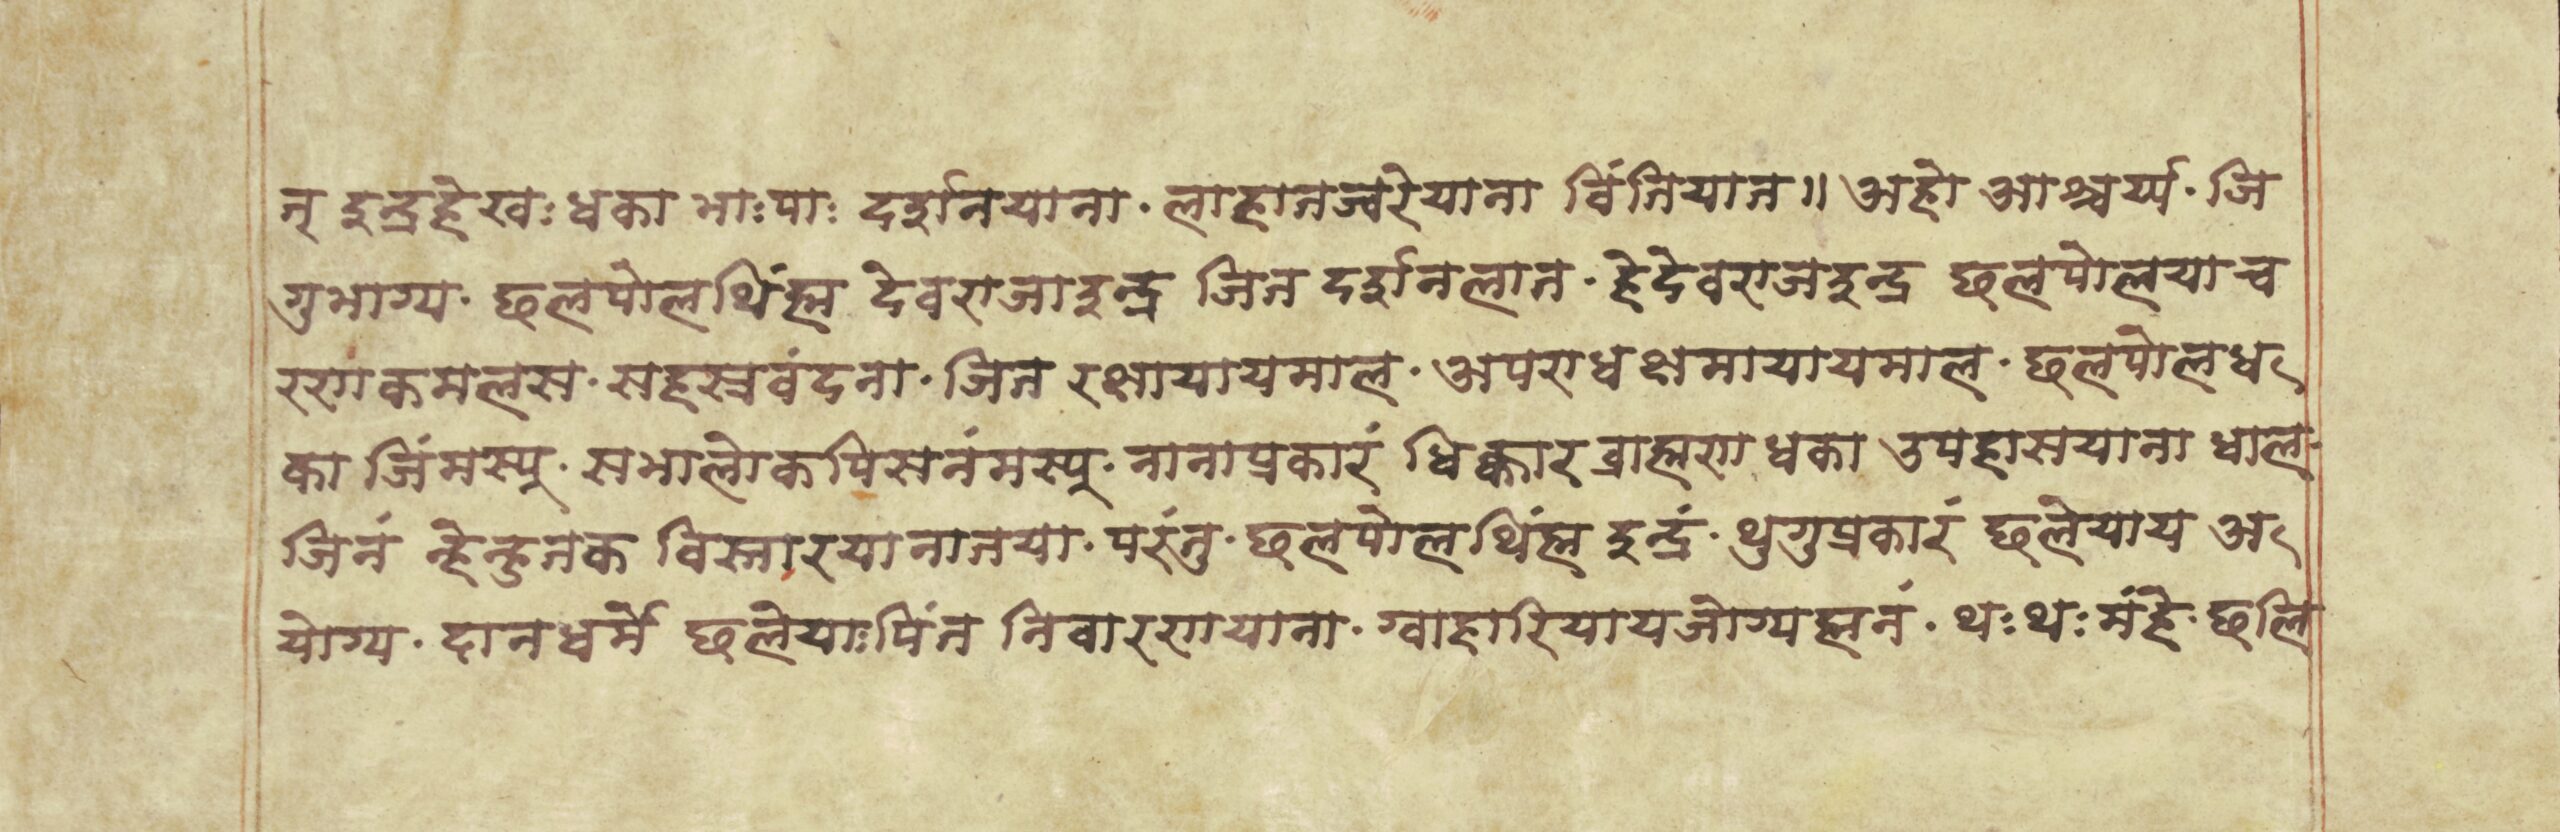 न् इन्द्रहेखः धका भाःपाः दर्शनयाना· लाहातज्वरेयाना विंतियात॥ अहो आश्चर्य्य· जि
गुभाग्य· छलपोलथिंह्म देवराजाइन्द्र जित दर्शनलात· हेदेवराजइन्द्र छलपोलयाच
रणकमलस· सहस्रवंदना· जित रक्षायायमाल· अपराधक्षमायायमाल· छलपोलध
का जिंमस्यू· सभालोकपिसनंमस्यू· नानाप्रकारं धिक्कार ब्राह्मण धका उपहासयाना धाल·
जिनं न्हेन्हुतक विस्तारयानातया· परंतु· छलपोलथिंह्म इन्द्रं· थुगुप्रकारं छलेयाय अ
योग्य· दानधर्म छलेयाःपिंत निवारणयाना· ग्वाहारियायजोग्यह्मनं· थःथःमंहे· छलि